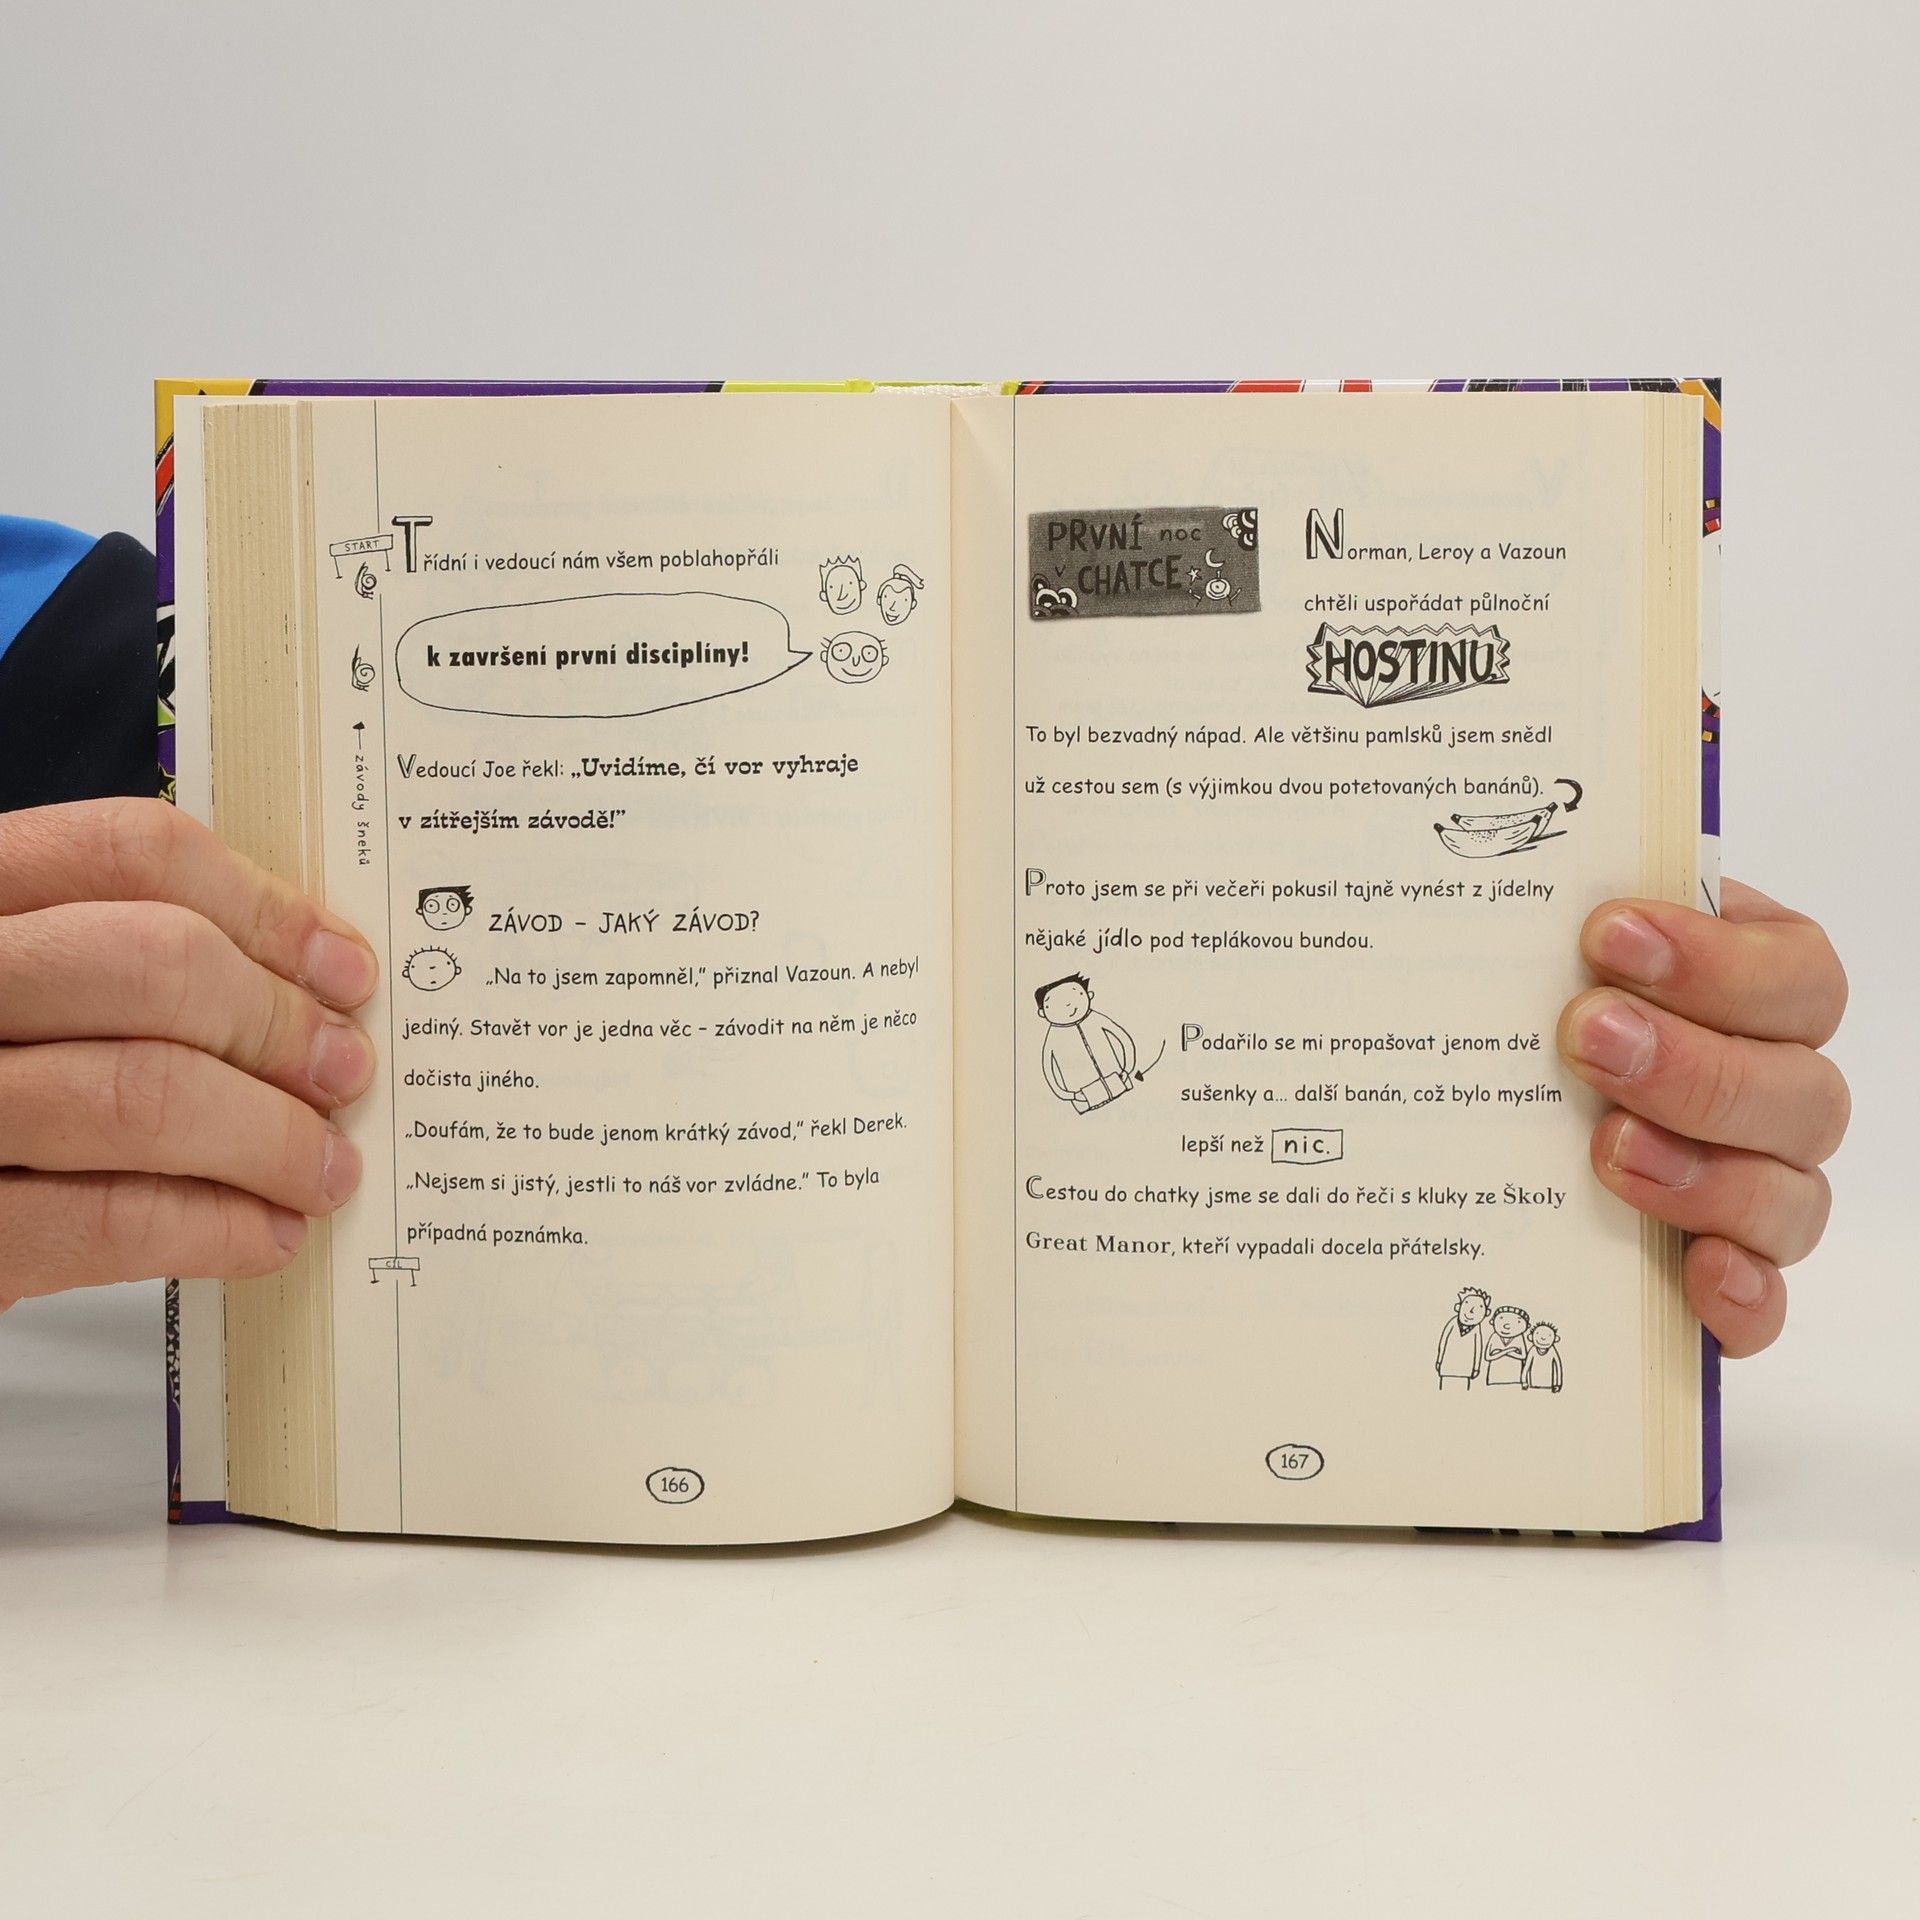 START
Třídní i vedoucí nám všem poblahopřáli
k završení první disciplíny!
závody šneků
Vedoucí Joe řekl: „Uvidíme, čí vor vyhraje
v zítřejším závodě!”
ZÁVOD – JAKÝ ZÁVOD?
„Na to jsem zapomněl,” přiznal Vazoun. A nebyl
jediný. Stavět vor je jedna věc – závodit na něm je něco
dočista jiného.
„Doufám, že to bude jenom krátký závod,” řekl Derek.
„Nejsem si jistý, jestli to náš vor zvládne.” To byla
případná poznámka.
CÍL
166
PRVNÍ noc
v CHATCE
Norman, Leroy a Vazoun
chtěli uspořádat půlnoční
HOSTINU.
To byl bezvadný nápad. Ale většinu pamlsků jsem snědl
už cestou sem (s výjimkou dvou potetovaných banánů).
Proto jsem se při večeři pokusil tajně vynést z jídelny
nějaké jídlo pod teplákovou bundou.
Podařilo se mi propašovat jenom dvě
sušenky a... další banán, což bylo myslím
lepší než nic.
Cestou do chatky jsme se dali do řeči s kluky ze Školy
Great Manor, kteří vypadali docela přátelsky.
167